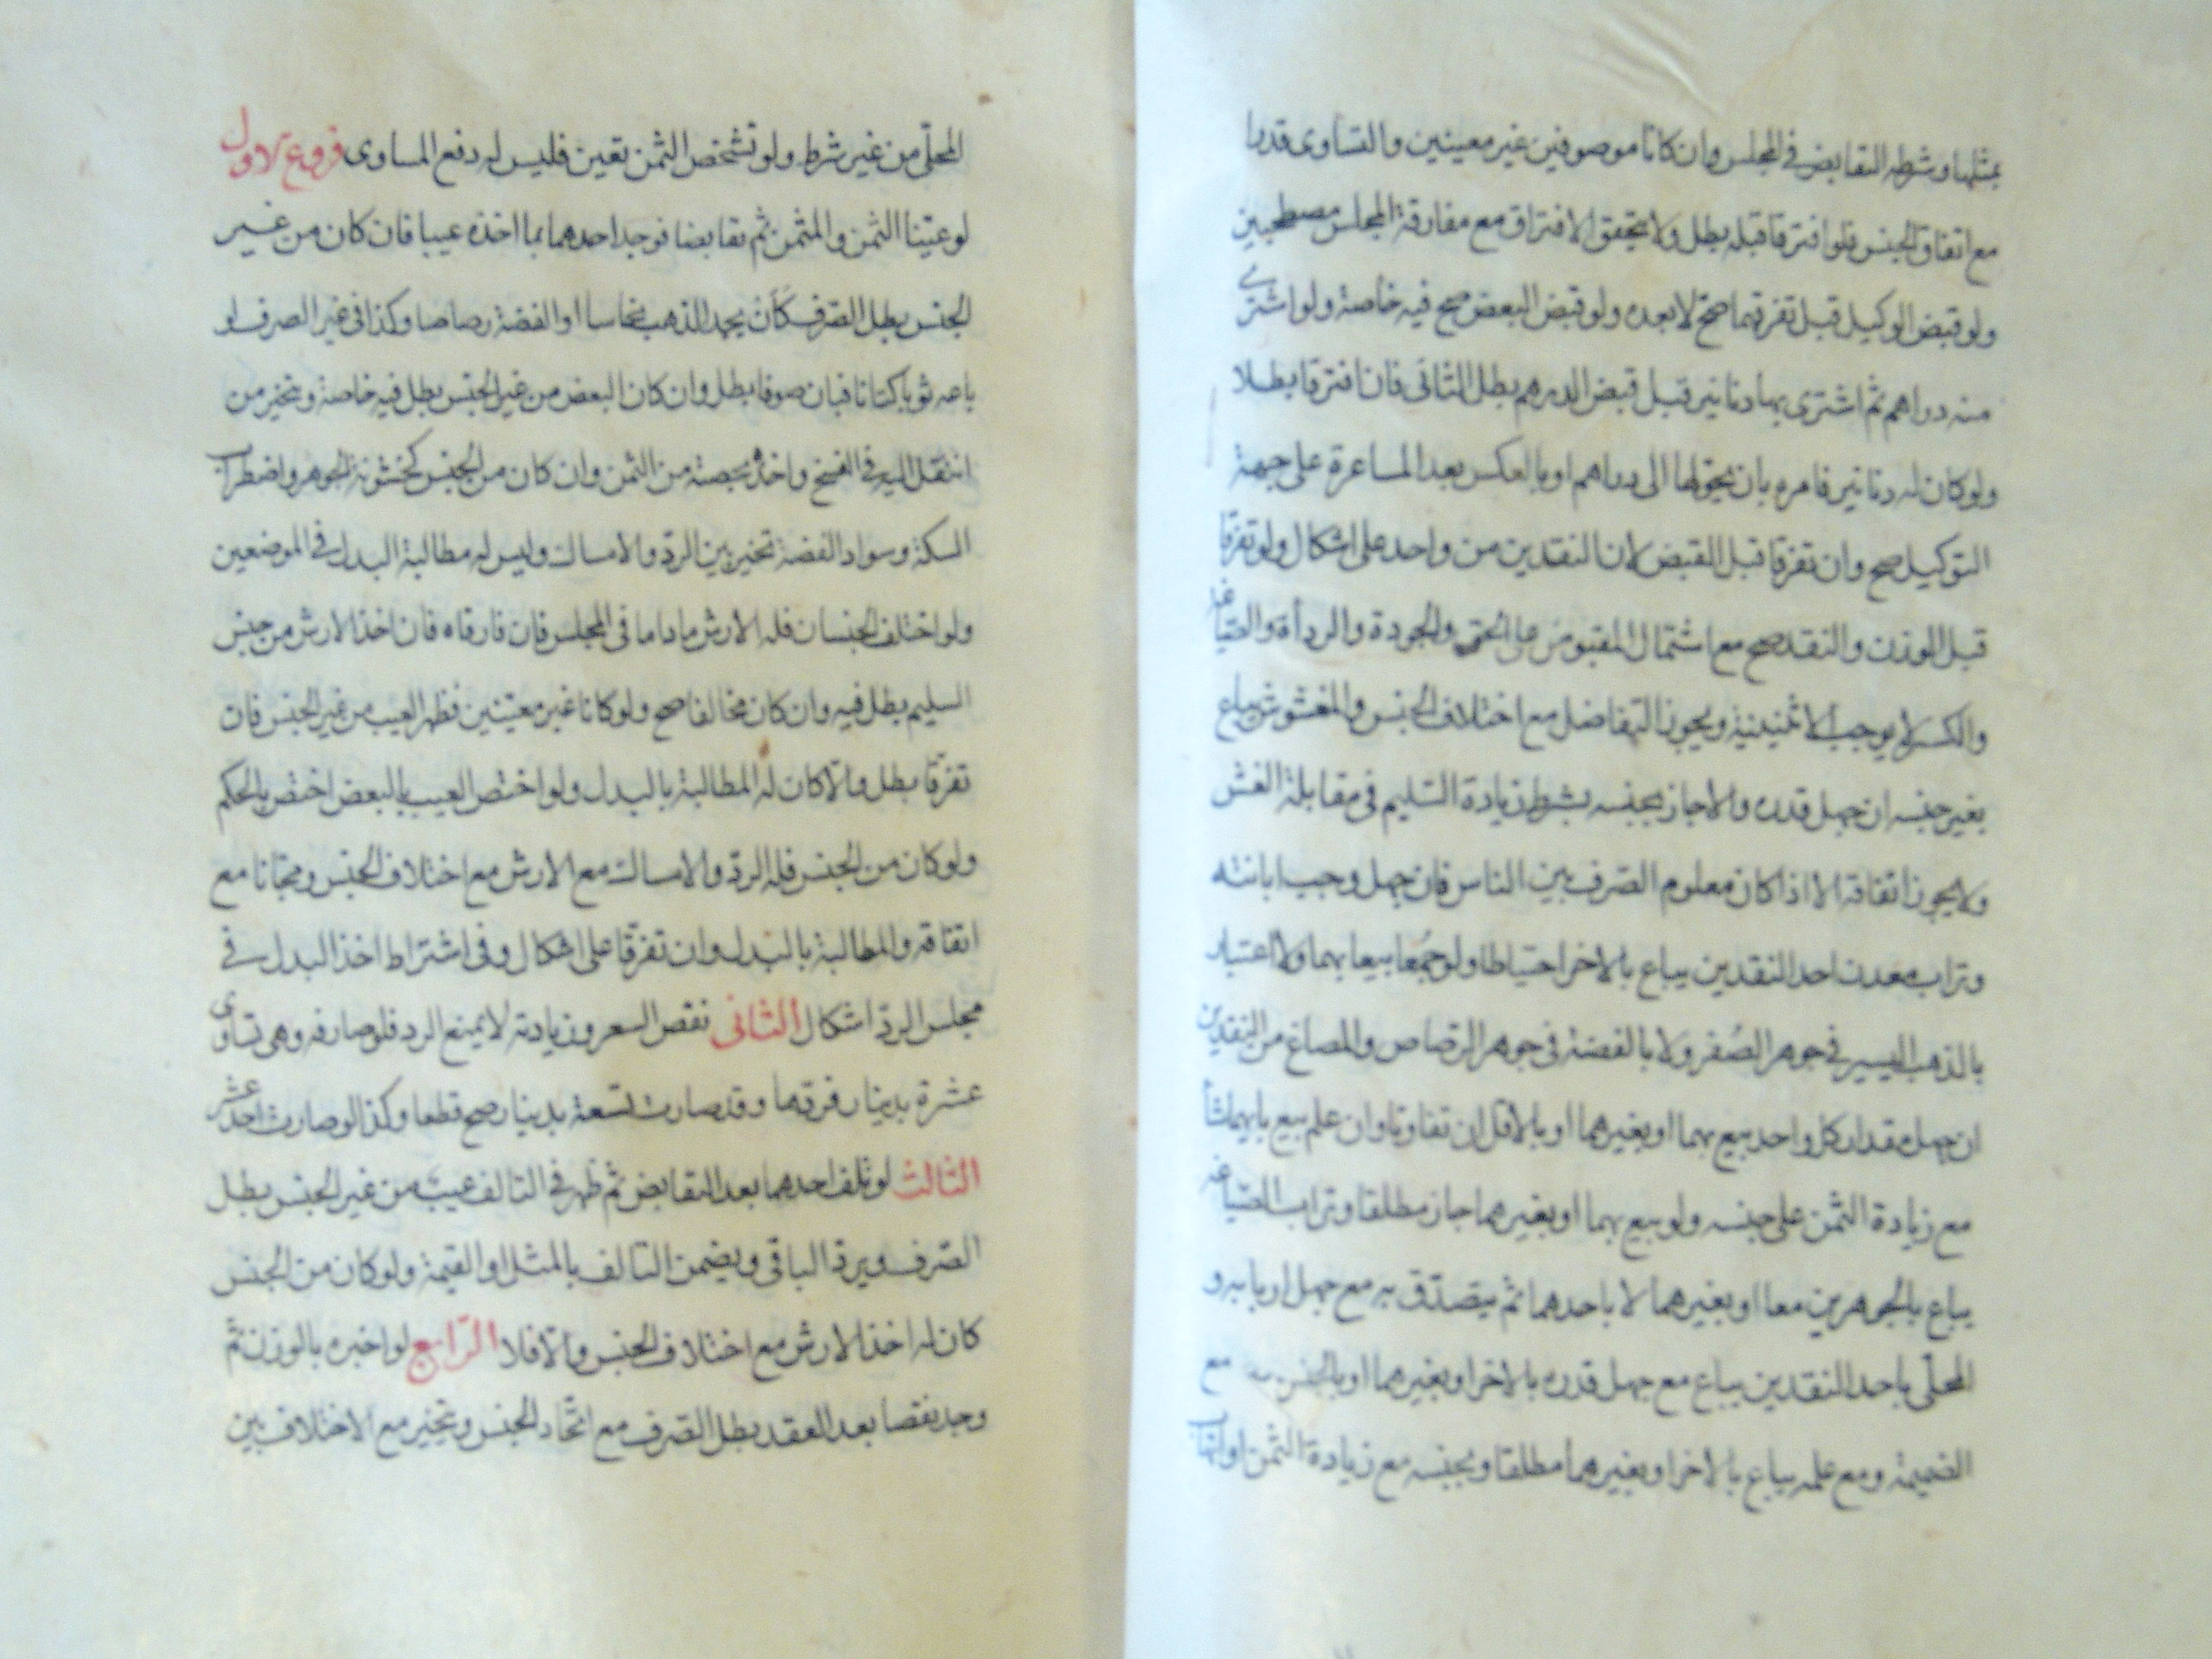 بمثلها وشرطه التقابض في المجلس وان كانا موصوفين غير معينين والتساوى قدرا
مع اتفاق الجنس فلو افترقا قبله بطل ولا يتحقق الافتراق مع مفارقة المجلس مصطحبين
ولو قبض الوكيل قبل تفرقهما صح لا بعده ولو قبض البعض صح فيه خاصة ولو اشترى
منه دراهم ثم اشترى بها دنانير قبل قبض الدرهم بطل الثانى فان افترقا بطلا
ولو كان له دنانير فامره بان يحولها الى دراهم او بالعكس بعد المساعرة على جهة
التوكيل صح وان تفرقا قبل القبض لان النقدين من واحد على اشكال ولو تفرقا
قبل الوزن والنقد صح مع اشتمال المقبوض على الحق والجودة والردأة والصياغة
والكسر لا يوجب الاثنينية ويجوز التفاضل مع اختلاف الجنس والمغشوش يباع
بغير جنسه ان جهل قدره والا جاز بجنسه بشرط زيادة السليم فى مقابلة الغش
ولا يجوز انفاقه الا اذا كان معلوم الصرف بين الناس فان جهل وجب ابانته
وتراب معدن احد النقدين يباع بالاخر احتياطا ولو جمعا بيعا بهما ولا اعتبار
بالذهب اليسير في جوهر الصُفر ولا بالفضة فى جوهر الرصاص والمصاغ من النقدين
ان جهل مقدار كل واحد بيع بهما او بغيرهما او بالاقل ان تفاوتا وان علم بيع بايهما شأ
مع زيادة الثمن على جنسه ولو بيع بهما او بغيرهما جاز مطلقا وتراب الصياغة
يباع بالجوهرين معا او بغيرهما لا باحدهما ثم يتصدق به مع جهل اربابه و
المحلّى باحد النقدين يباع مع جهل قدره بالاخر او بغيرهما او بالجنس مع
الضميمة ومع علمه يباع بالاخر او بغيرهما مطلقا وبجنسه مع زيادة الثمن او اتهاب
المحلّى من غير شرط ولو تشخص الثمن تعين فليس له دفع المساوى فروع الاول
لو عيّنا الثمن والمثمن ثم تقابضا فوجد احدهما بما اخذه عيبا فان كان من غير
الجنس بطل الصرف كَأَن يجد الذهب نحاسا او الفضة رصاصا وكذا فى غير الصرف لو
باعه ثوبا كتانا فبان صوفا بطل وان كان البعض من غير الجنس بطل فيه خاصة ويتخير من
انتقل اليه في الفسخ واخذه بحصة من الثمن وان كان من الجنس كخشونة الجوهر واضطراب
السكة وسواد الفضة تخير بين الردّ والامساك وليس له مطالبة البدل في الموضعين
ولو اختلف الجنسان فله الارش ما داما فى المجلس فان فارقاه فان اخذ الارش من جنس
السليم بطل فيه وان كان مخالفا صح ولو كانا غير معيّنين فظهر العيب من غير الجنس فان
تفرّقا بطل والّا كان له المطالبة بالبدل ولو اختص العيب بالبعض اختص بالحكم
ولو كان من الجنس فله الردّ والامساك مع الارش مع اختلاف الجنس ومجّانا مع
اتفاقه والمطالبة بالبدل وان تفرّقا على اشكال وفى اشتراط اخذ البدل في
مجلس الردّ اشكال الثانى نقص السعر وزيادته لا يمنع الرد فلو صارفه وهى تساوى
عشرة بدينار فردّها وقد صارت تسعة بدينار صح قطعا وكذا لو صارت احد عشر
الثالث لو تلف احدهما بعد التقابض ثم ظهر في التالف عيب من غير الجنس بطل
الصرف ويردّ الباقى ويضمن التالف بالمثل او القيمة ولو كان من الجنس
كان له اخذ الارش مع اختلاف الجنس والّا فلا الرّابع لو اخبره بالوزن ثم
وجد نقصا بعد العقد بطل الصرف مع اتّحاد الجنس وتخير مع الاختلاف بين